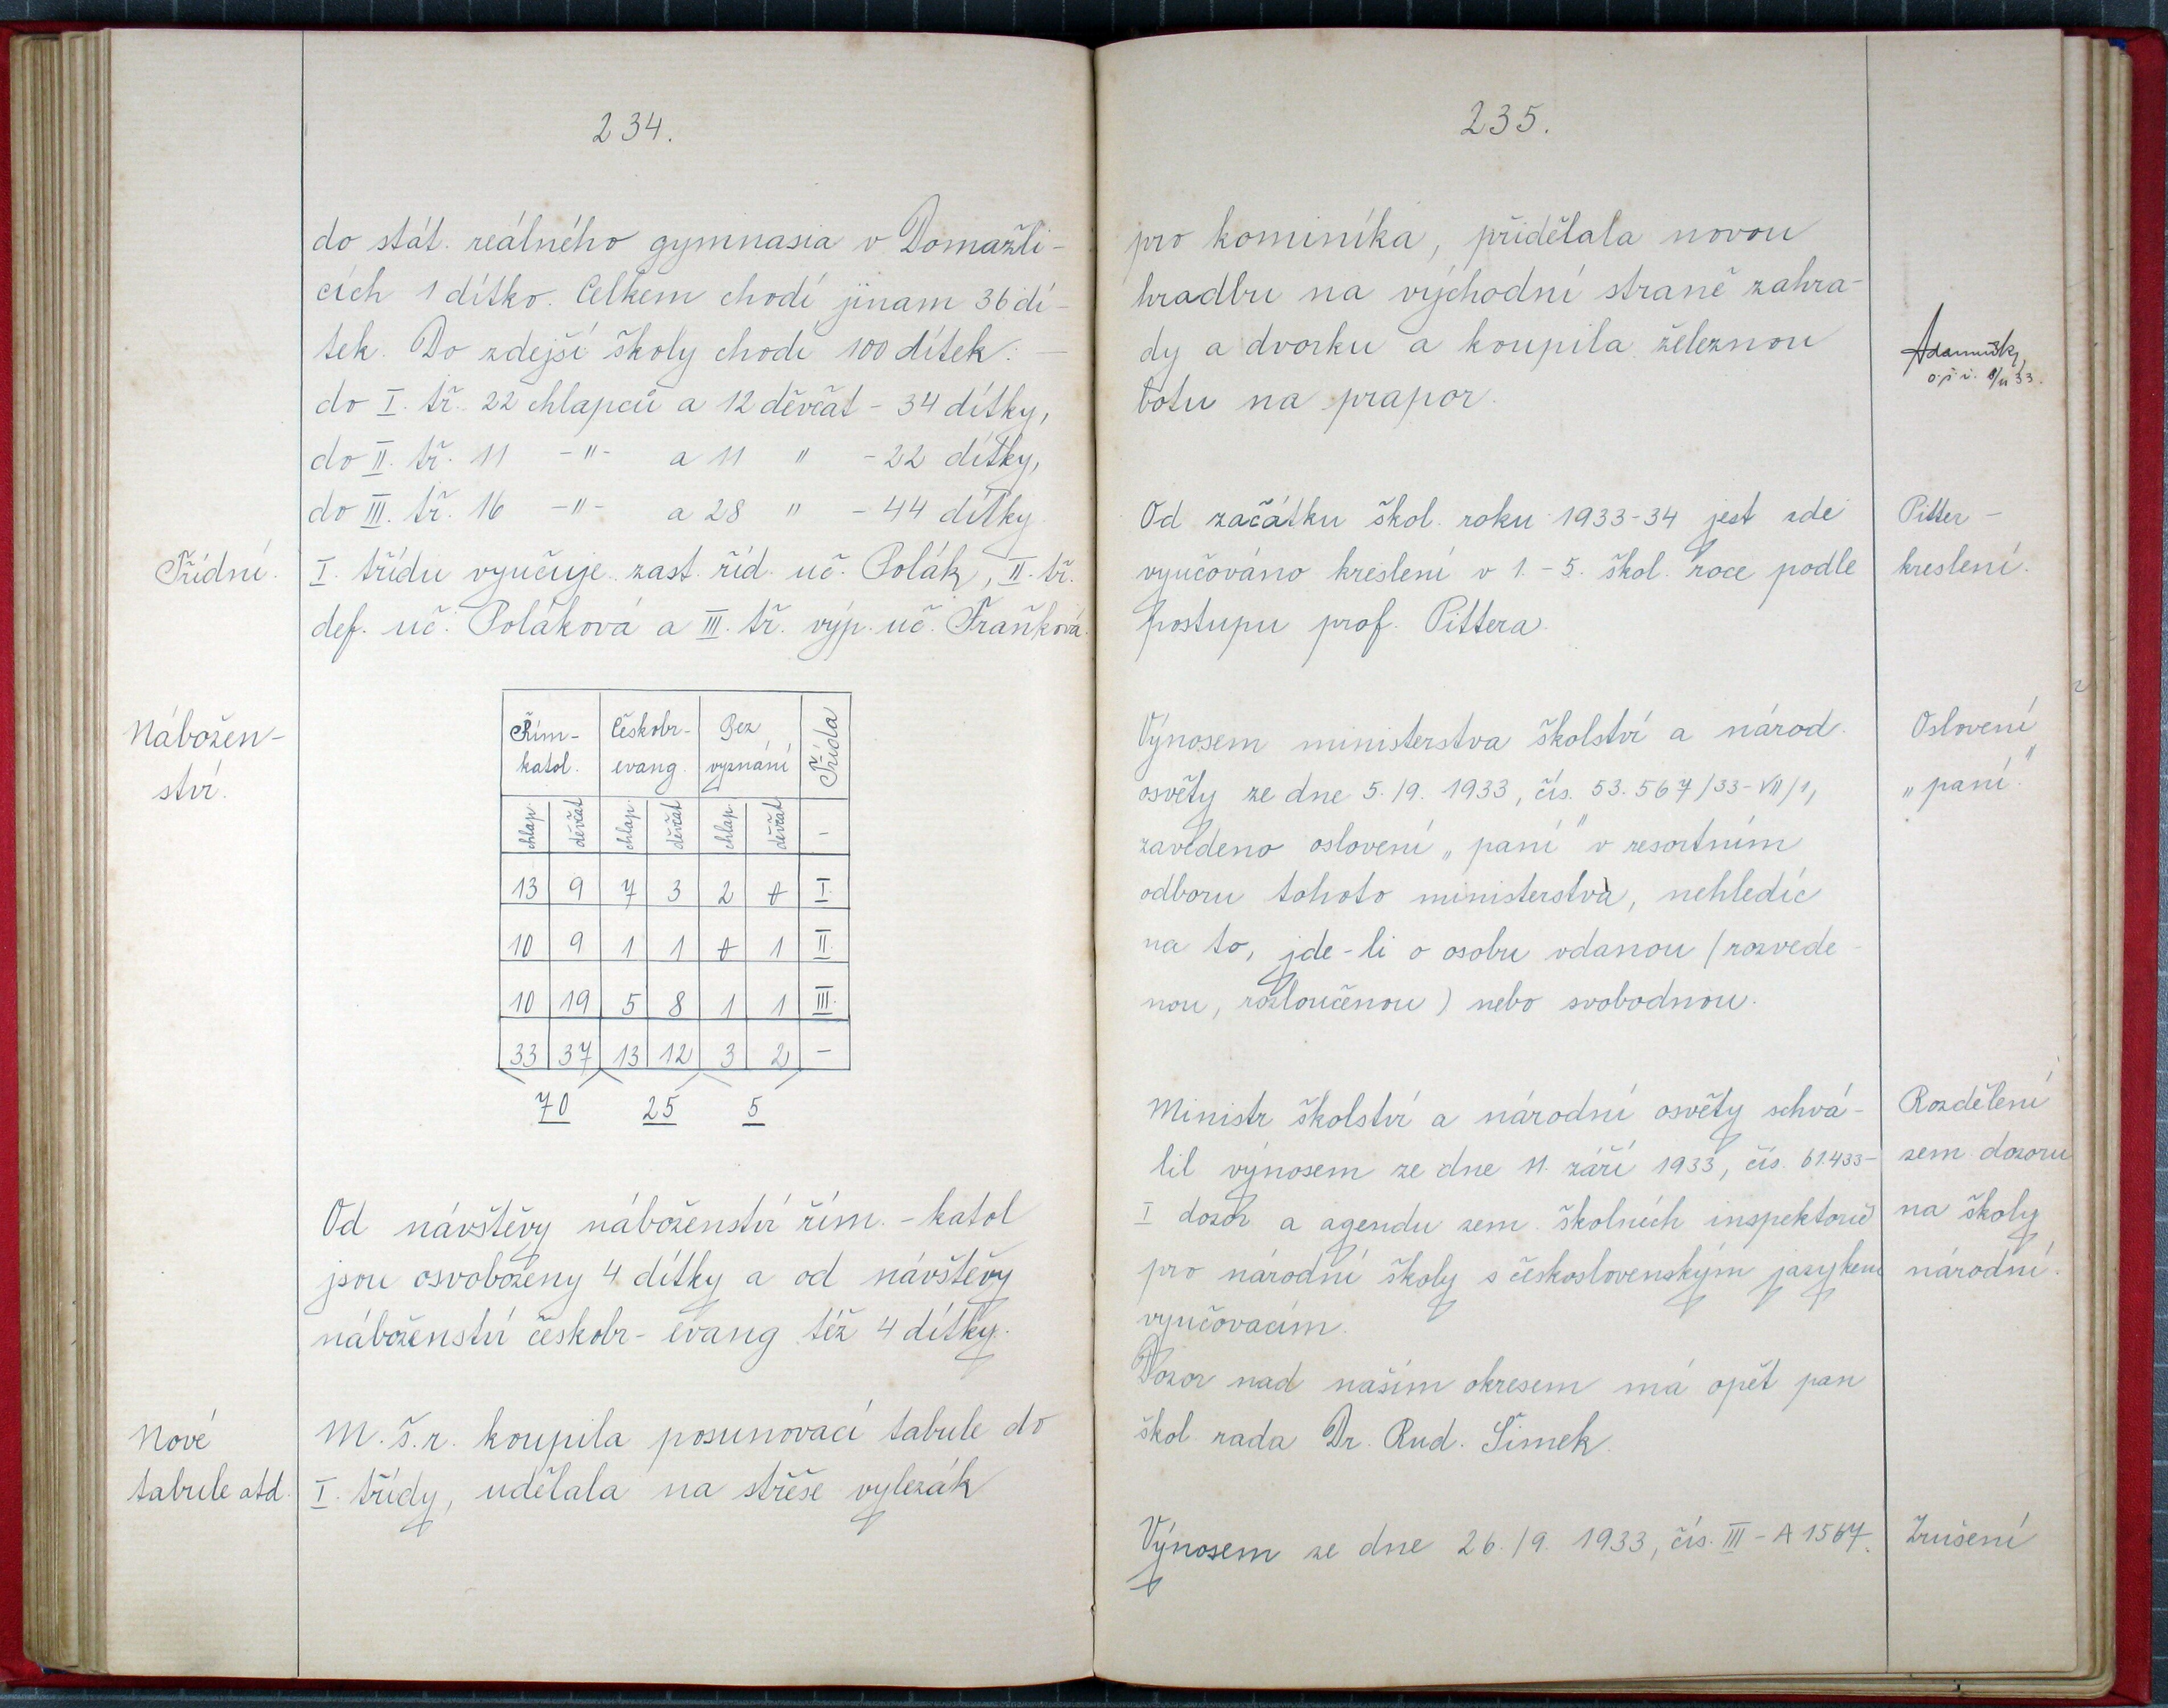 234.
do stát. reálného gymnasia v Domažli-
cích 1 dítko. Celkem chodí jinam 36 dí-
tek. Do zdejší školy chodí 100 dítek: —
do I. tř. 22 chlapců a 12 děvčat - 34 dítky,
do II. tř. 11 -"- a 11 " - 22 dítky,
do III. tř. 16 -"- a 28 " - 44 dítky
Třídní.
I. třídu vyučuje zast. říd. uč. Polák, II. tř.
def. uč. Poláková a III. tř. výp. uč. Fraňková.
Nábožen-
ství.
Řím- Českobr- Bez Třída
katol. evang. vyznání
chlap. děvčat chlap. děvčat chlap. děvčat -
13 9 7 3 2 0 I.
10 9 1 1 0 1 II.
10 19 5 8 1 1 III.
33 37 13 12 3 2 -
70 25 5
Od návštěvy náboženství řím. - katol
jsou osvobozeny 4 dítky a od návštěvy
náboženství českobr- evang též 4 dítky.
Nové
tabule atd.
M. š. r. koupila posunovací tabule do
I. třídy, udělala na střeše vylezák
235.
pro kominíka, přidělala novou
hradbu na východní straně zahra-
dy a dvorku a koupila železnou
botu na prapor.
33.
Od začátku škol. roku 1933-34 jest zde
vyučováno kreslení v 1. - 5. škol. roce podle
postupu prof. Pittera.
Pitter -
kreslení.
Výnosem ministerstva školství a národ.
osvěty ze dne 5./9. 1933, čís. 53.567/33-VII/1,
zavedeno oslovení „paní" v resortním
odboru tohoto ministerstva, nehledíc
na to, jde-li o osobu vdanou (rozvede-
nou, rozloučenou) nebo svobodnou.
Oslovení
„paní."
Ministr školství a národní osvěty schvá-
lil výnosem ze dne 11. září 1933, čís. 61.433-
I dozor a agendu zem. školních inspektorů
pro národní školy s československým jazykem
vyučovacím.
Dozor nad naším okresem má opět pan
škol. rada Dr. Rud. Šimek.
Rozdělení
zem. dozoru
na školy
národní.
Výnosem ze dne 26./9. 1933, čís. III - A 1567.
Zrušení